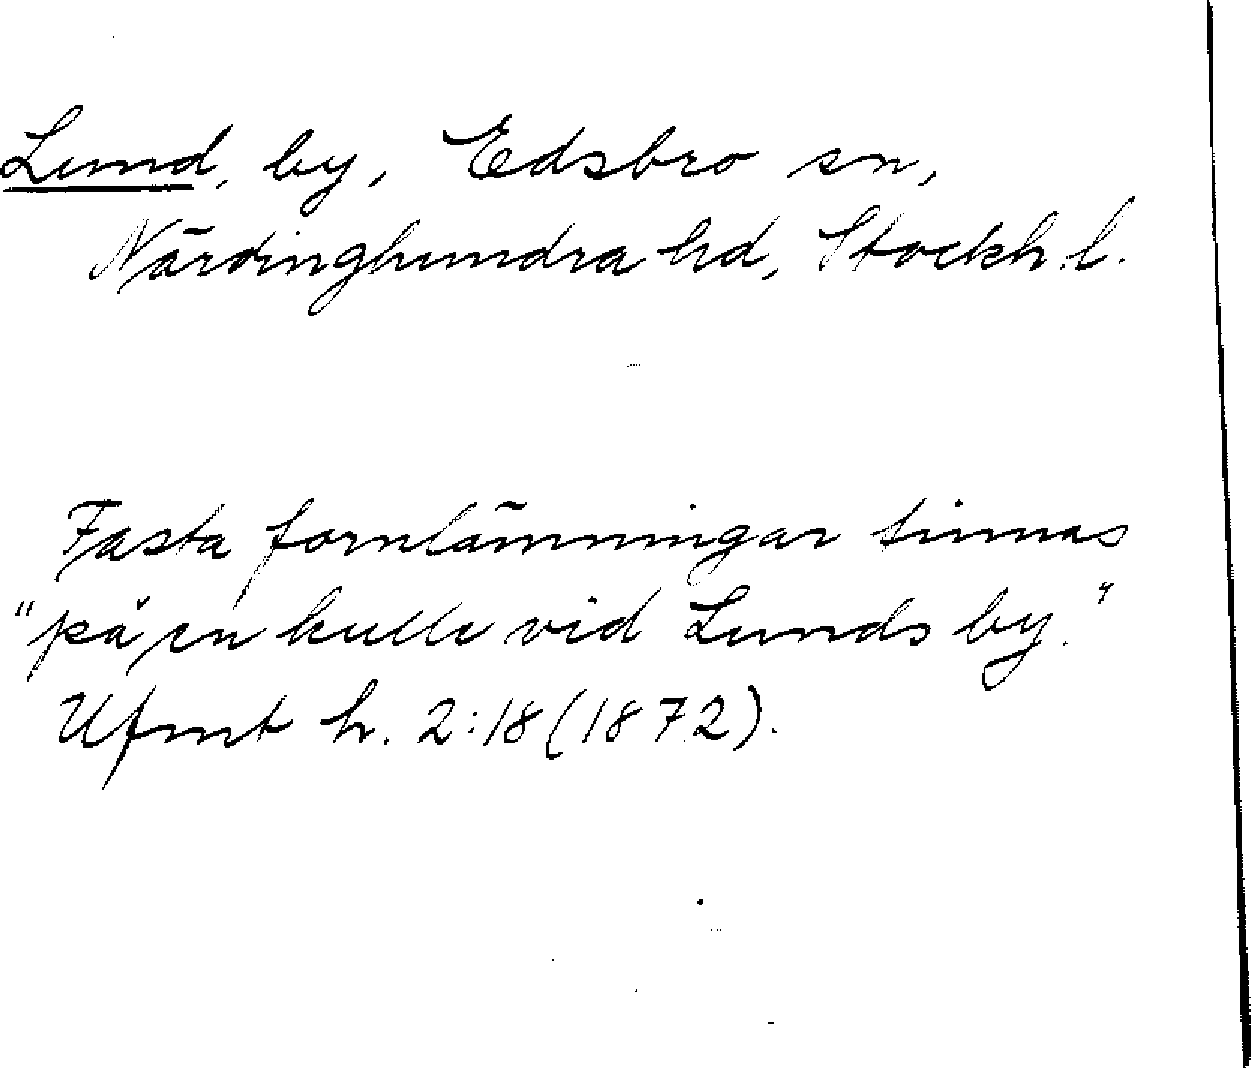 Lund, by, Edsbro sn,
Närdinghundra hd, Stockh. l.
Fasta fornlämningar finnas
"på en kulle vid Lunds by."
Ufmt h. 2:18 (1872).